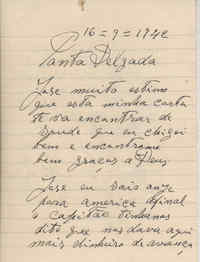 16=9=1942
Ponta Delgada
José muito estimo
que esta minha carta
te va encontrar de
saude que eu chigei
bem e encontrome
bem graças a Deus.
José eu sais
para america afinal
o capitão tinhanos
dito que nos dava aqui
mais dinheiro de avanço